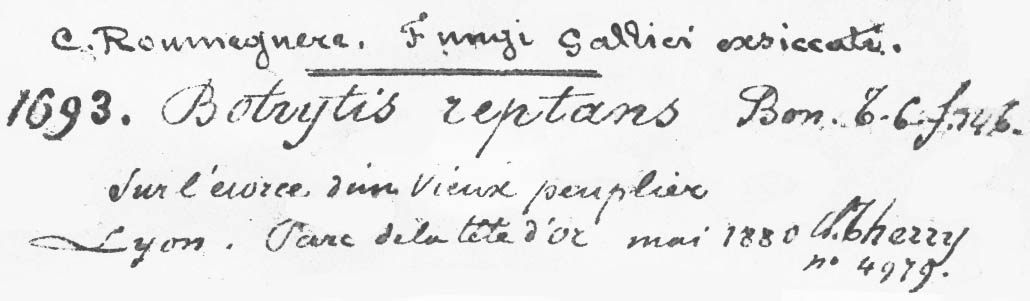 C. Roumeguere. Fungi Gallici exsiccati.
1693. Botrytis reptans Bon. T. 6. f. 146.
Sur l'ecorce d'un Vieux peuplier
Lyon. Parc de la tête d'or mai 1880 J. Therry
n° 4979.